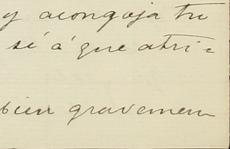 y acongoja tu
sé á que atri-
bien gravemen